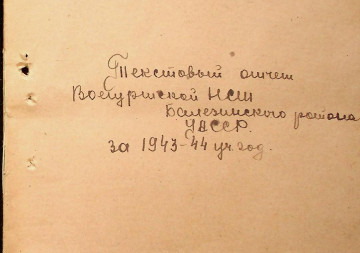 Текстовый отчет
Вогуртской НСШ
Балезинского района
УАССР.
за 1943-44 уч. год.